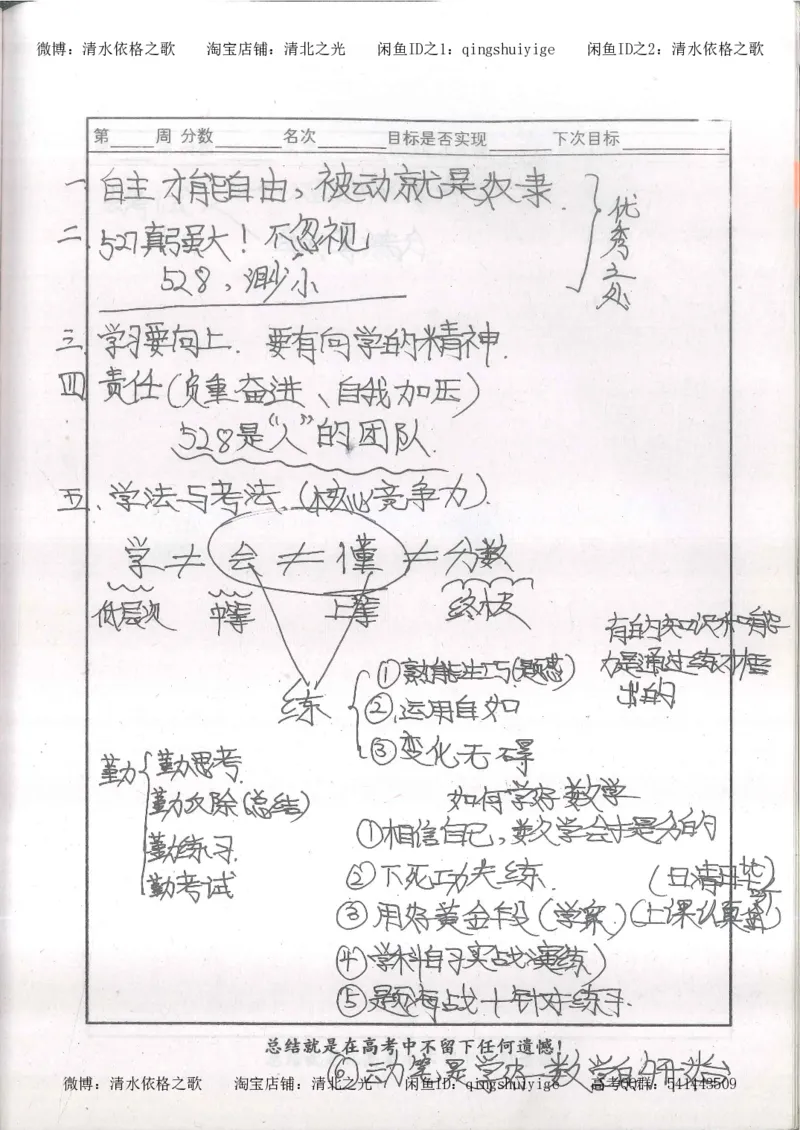 微博：清水依格之歌 淘宝店铺：清北之光 闲鱼ID之1：qingshuiyige 闲鱼ID之2：清水依格之歌
第 周 分数 名次 目标是否实现 下次目标
一.自主才能自由，被动就是奴隶.
优秀之处
二.527真强大！不忽视
528，渺小
三.学习要向上. 要有向学的精神.
四.责任(负重奋进、自我加压)
528是“人”的团队.
五、学法与考法.(核心竞争力).
学≠会≠懂≠分数
低层次 中等 上等 终极
有的知识和能
力是通过练才悟
出的
练
①熟能生巧(题感)
②.运用自如
③变化无碍
勤
勤思考.
勤反除(总结)
勤练习.
勤考试
如何学好数学
①相信自己，数学会才是分的
②下死功夫练.
(日清
③用好黄金段(学案)(上课认真
④学科自习实战演练)
⑤题海战十针对练手.
总结就是在高考中不留下任何遗憾！
⑥动笔是学好数学的开始
微博：清水依格之歌 淘宝店铺：清北之光 闲鱼ID：qingshuiyige 高考QQ群：541443509